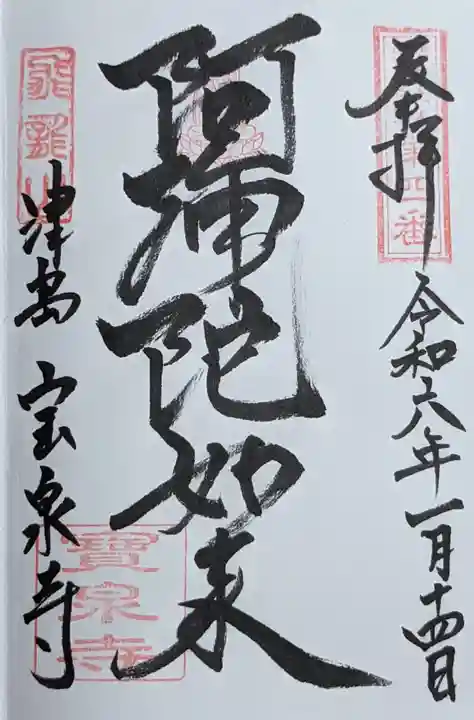 奉拝
令和六年一月十四日
阿弥陀如来
津島 宝泉寺
寶泉寺